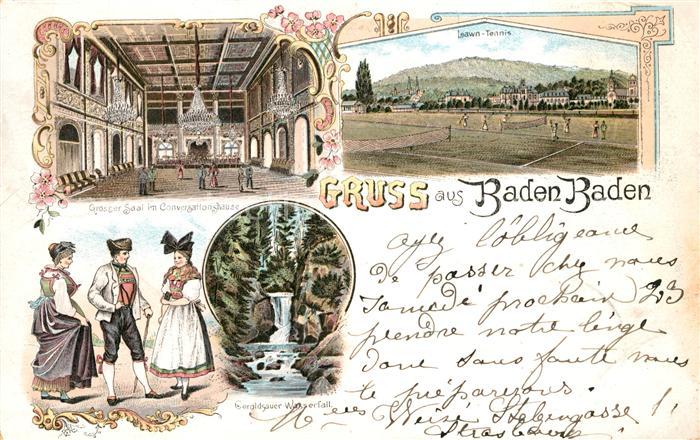 Lawn-Tennis
Grosser Saal im Conversationshause
GRUSS aus Baden Baden
ayez l'obligeance
de passer chez nous
Samedi prochain 23
prendre notre linge
donc sans faute nous
le préparerons.
Geroldsauer Wasserfall.
M elles Weizé
Strasbourg